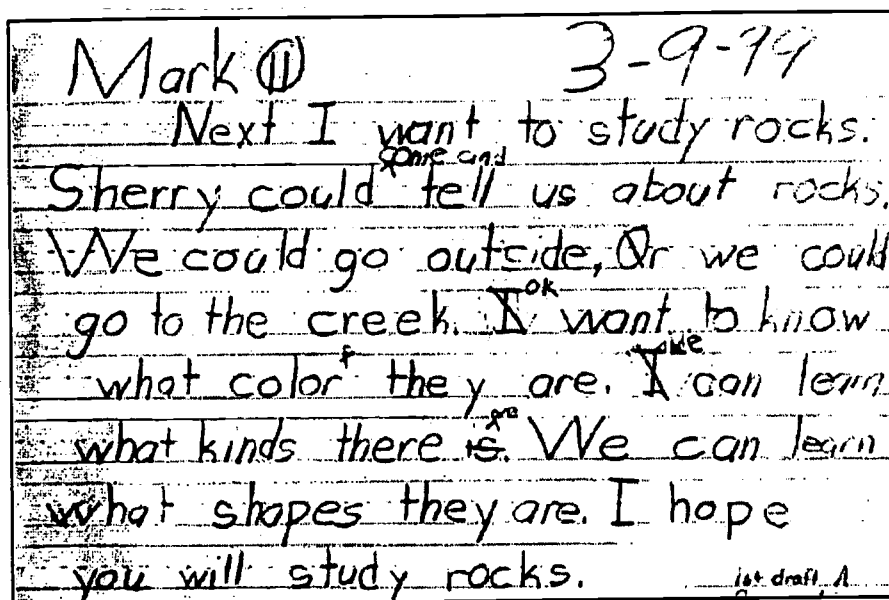 Mark ⑪ 3-9-99
Next I want to study rocks.
come and
Sherry could tell us about rocks.
We could go outside, Or we could
go to the creek. I want to know
what color they are. I can learn
what kinds there is. We can learn
what shapes they are. I hope
you will study rocks.
1st draft